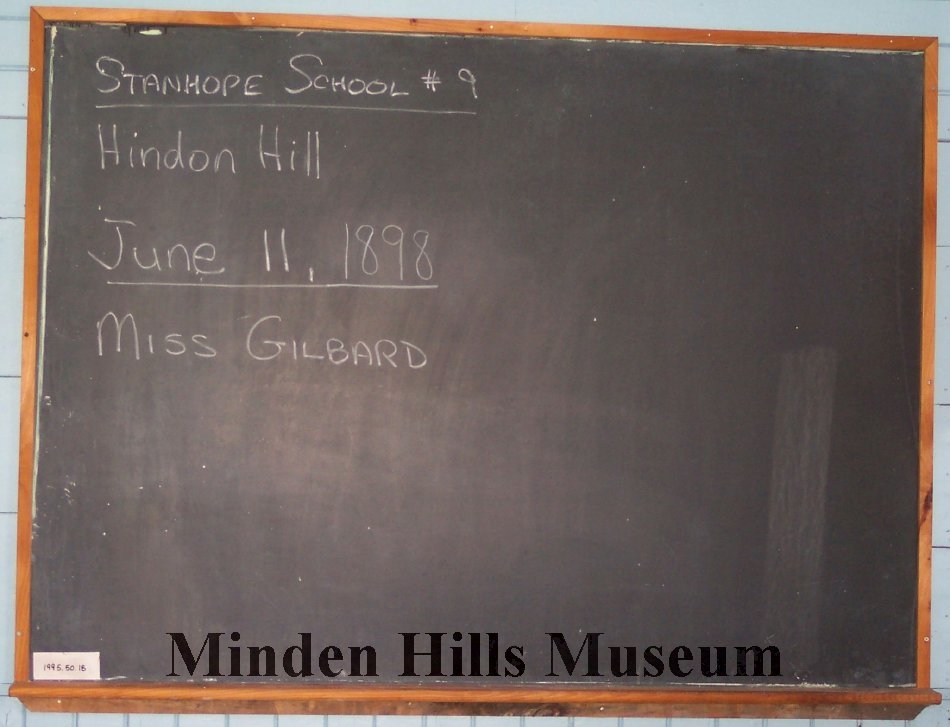 STANHOPE SCHOOL # 9
Hindon Hill
June 11, 1898
MISS GILBARD
Minden Hills Museum
1995.50.1B